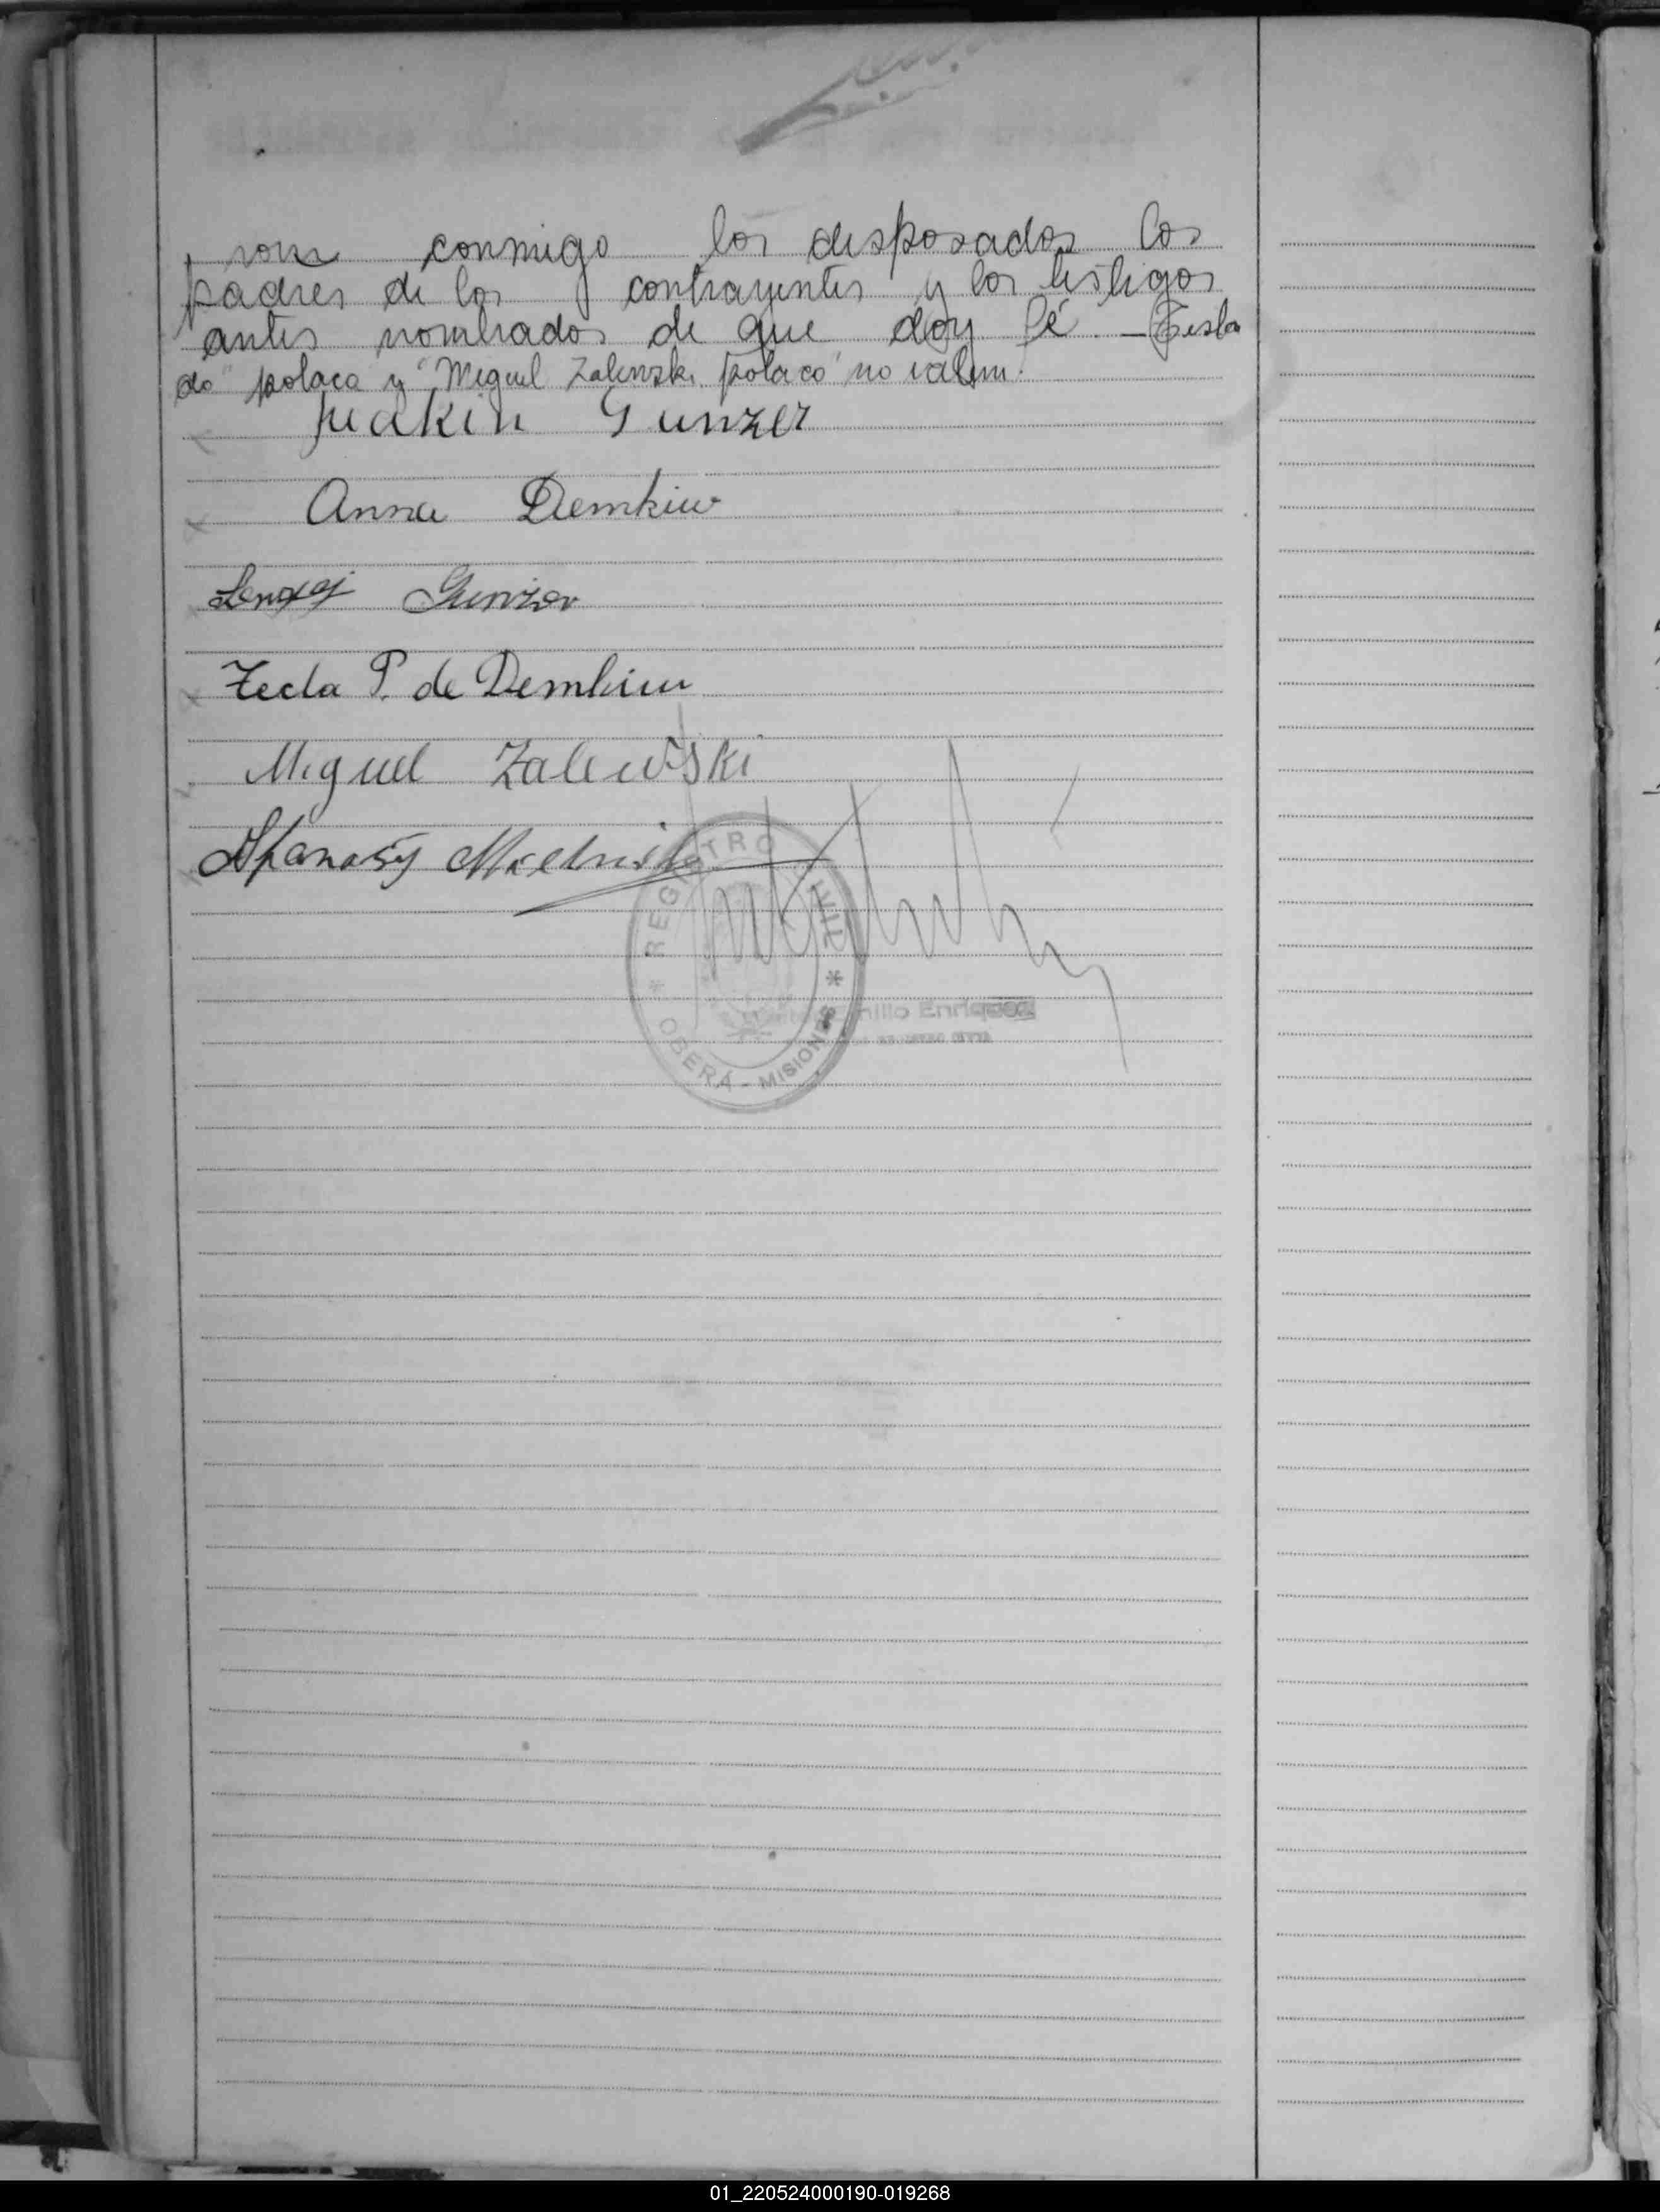 ron conmigo los desposados los
padres de los contrayentes y los testigos
antes nombrados de que doy fé. - Testa
do "polaca y "Miguel Zalewski polaco" no valen.
Juakin Gunzer
Anna Demkiw
Gunzer
Tecla P. de Demkiw
Miguel Zalewski
REGISTRO CIVIL
Enriquez
* OBERÁ - MISIONES *
01_220524000190-019268